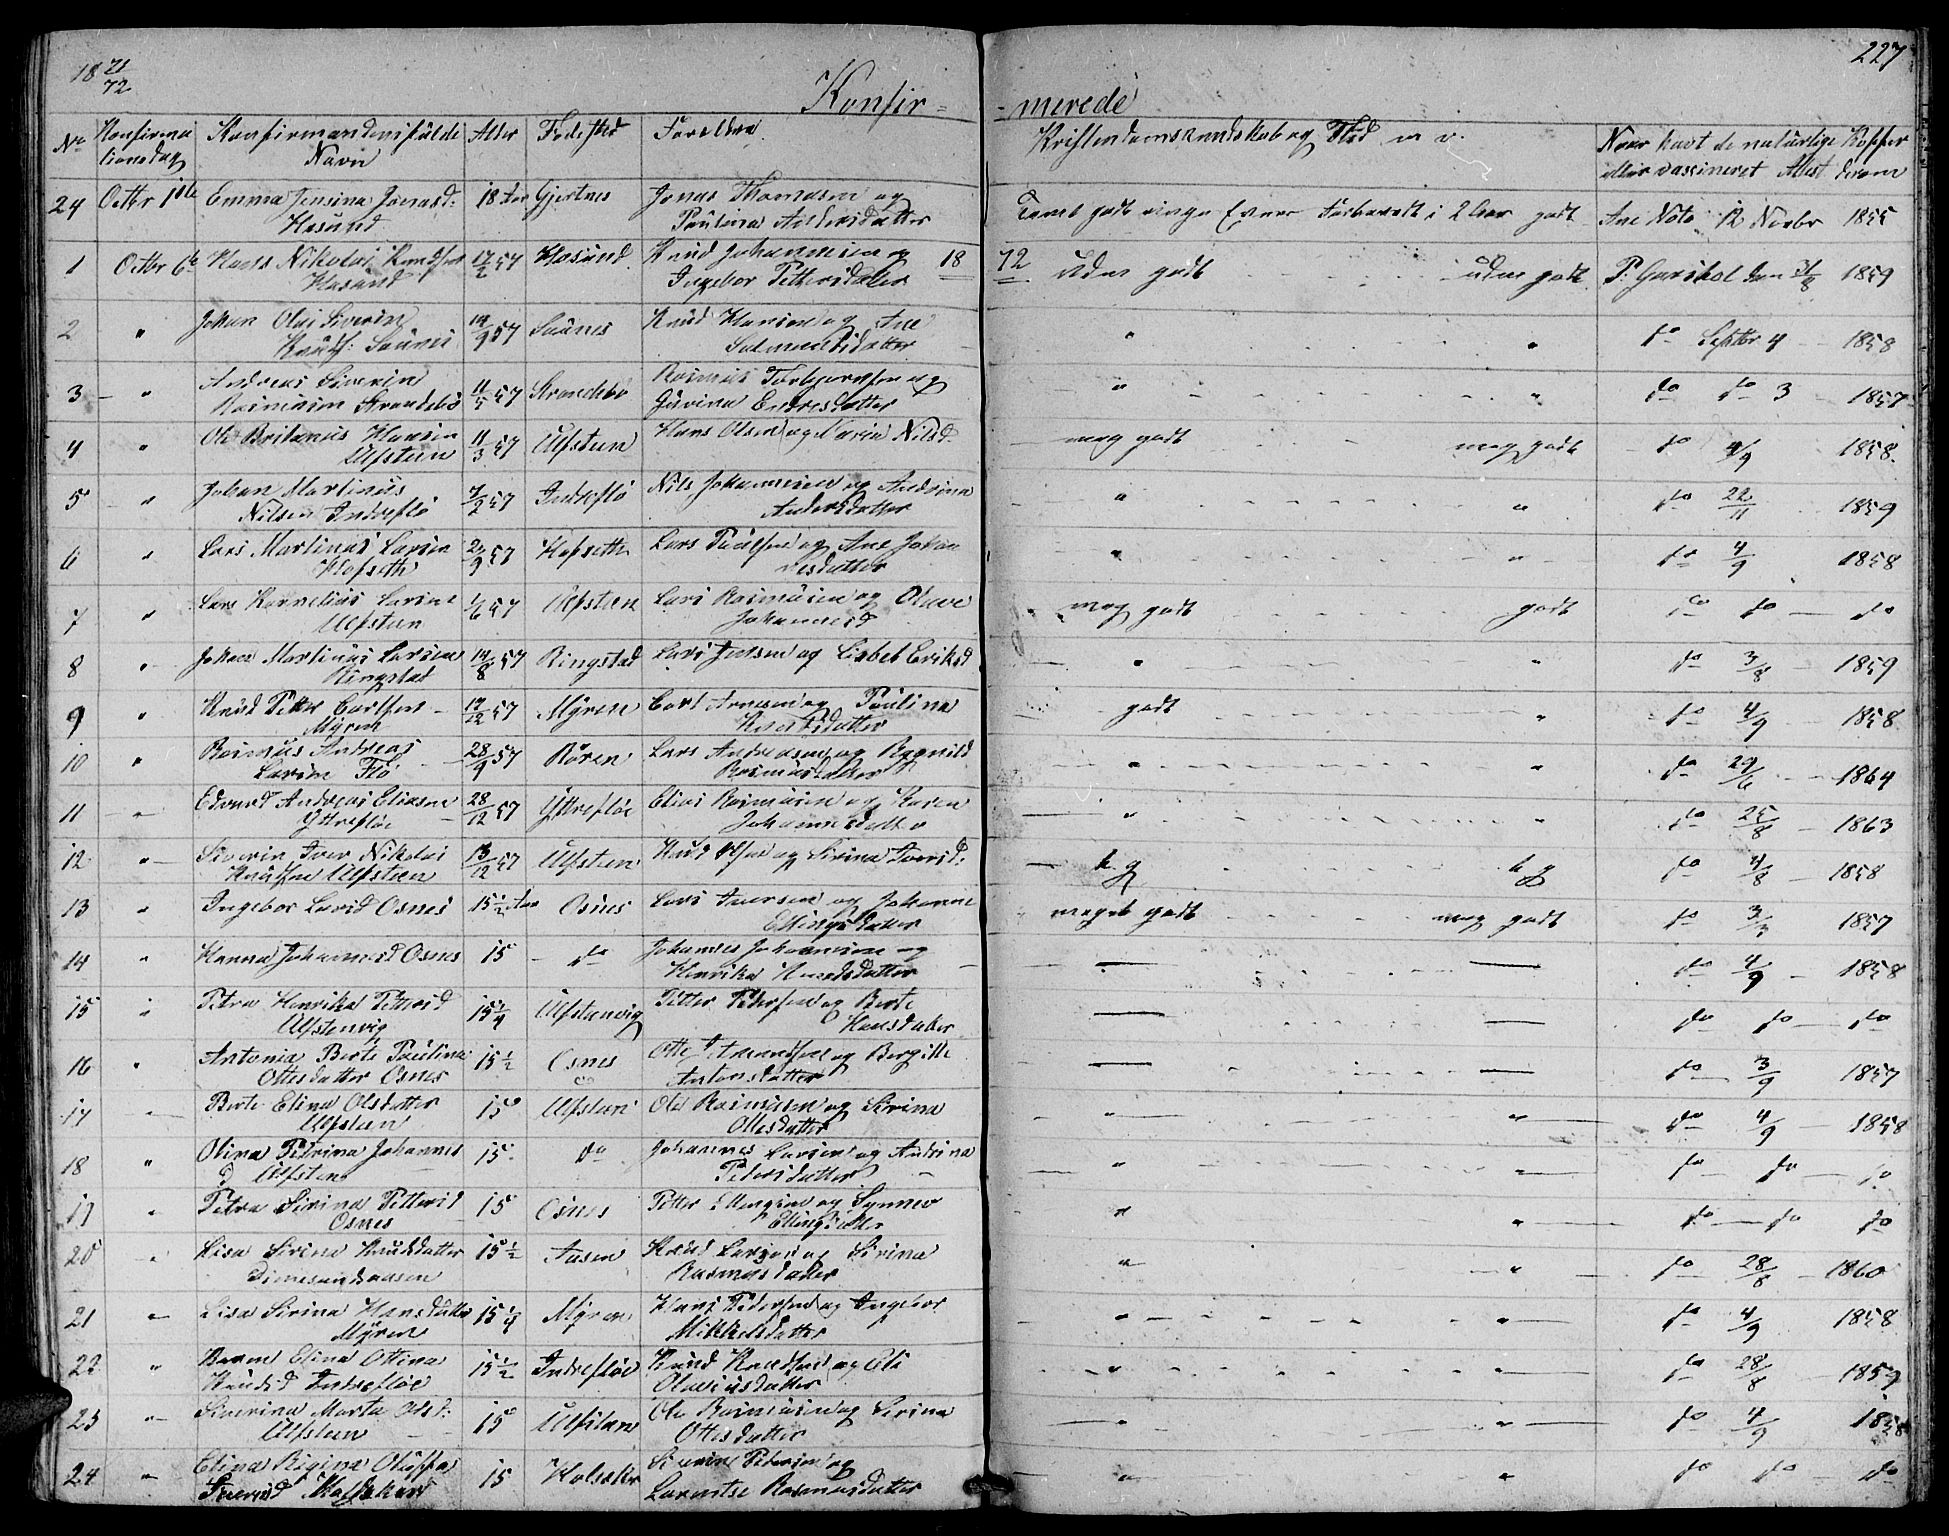 18 71/72
227
Konfir- -merede
No Konfirma tionsdag Konfirmandens fulde Navn Alder Fødested Forældre Kristendomskundskab og Flid m v. Naar havt de naturlige Kopper eller vaccineret Attest derom
24 Octbr 1ste Emma Jensina Jonasd: Hasund 18 Aar Gjertnes Jonas Thomasen og Paulina Andersdatter godt ringe Evner Forberedt i 2 Aar godt Novbr 1855
1 Octbr 6te Hans Nikolai Knudsen Hasund 17/2 57 Hasund Knud Johannesen og Ingebor Pettersdatter 18 72 Udm godt udm godt P: Garshol den 31/8 1859
2 " Johan Olai Siverin Knuds: Saunes 14/9 57 Saunes Knud Hansen og Ane Salmundsdatter " " do Septbr 4 1858
3 " Andreas Siverin Rasmusen Strandebø 11/5 57 Strandebø Rasmus Torbjørnsen og Gurina Endresdatter " " do do 3 1857
4 " Ole Britanus Hansen Ulfsteen 11/3 57 Ulfsteen Hans Olsen og Karen Nilsd meg godt meg godt do 4/9 1858
5 " Johan Martinus Nilsen Indreflø 7/2 57 Indreflø Nils Johannesen og Andrina Andersdatter " " do 22/11 1859
6 " Lars Martinus Larsen Hofseth 24/9 57 Hofseth Lars Paulsen og Ane Johannesdatter " " do 4/9 1858
7 " Lars Kornelius Larsen Ulfsteen 1/6 57 Ulfsteen Lars Rasmusen og Olave Johannesd meg godt godt do do do
8 " Johan Martinus Larsen Ringstad 14/8 57 Ringstad Lars Jensen og Lisbet Eriksd " " do 3/8 1859
9 " Knud Petter Carlsen Myren 17/12 57 Myren Carl Arnesen og Paulina Knudsdatter godt " do 4/9 1858
10 " Rasmus Andreas Larsen Flø 28/9 57 Røren Lars Andreasen og Ragnild Rasmusdatter " " do 29/6 1864
11 " Edvard Andreas Eliasen Yttrefløe 28/12 57 Yttrefløe Elias Rasmusen og Karen Johannesdatter " " do 25/8 1863
12 " Siverin Iver Nikolai Knudsen Ulfsteen 13/12 57 Ulfsteen Knud Olsen og Sirina Iversd: t g t g do 4/8 1858
13 " Ingebor Larsd Osnes 15 1/2 Aar Osnes Lars Iversen og Johanne Ellingsdatter meget godt meg godt do 3/9 1857
14 " Hanna Johannesd Osnes 15 do Johannes Johannesen og Henrika Knudsdatter do 4/9 1858
15 " Petra Henrika Pettersd Ulfstenvig 15 1/4 Ulfstenvig Petter Pedersen og Berte Hansdatter do do do
16 " Antonia Berte Paulina Ottesdatter Osnes 15 1/2 Osnes Otte Amundsen og Bergitte Antonsdatter do 3/9 1857
17 " Berte Elina Olsdatter Ulfsteen 15 Ulfsteen Ole Rasmusen og Sirina Ottesdatter " " do 4/9 1858
18 " Olina Petrina Johannesd Ulfsten 15 do Johannes Larsen og Andrina Pedersdatter " " do do do
19 " Petra Sirina Pettersd Osnes 15 Osnes Petter Ellingsen og Synnev Ellingsdatter " " do do do
20 " Lisa Sirina Knudsdatter Dimesundaasen 15 1/2 Aasen Knud Larsen og Sirina Rasmusdatter " " do 28/8 1860
21 " Lisa Sirina Hansdatter Myren 15 1/4 Myren Hans Pedersen og Ingebor Mikkelsdatter " " do 4/9 1858
22 " Karen Elina Ottina Knudsd Indrefløe 15 1/2 Indrefløe Knud Knudsen og Eli Olaviusdatter " " do 28/8 1859
23 " Siverina Marta Olsd: Ulfsteen 15 Ulfsteen Ole Rasmusen og Sirina Ottesdatter " " do 4/9 1858
24 " Elina Regina Oluffa Siversd 15 Holsæker Siverin Pedersen og Larentse Rasmusdatter " " do do do